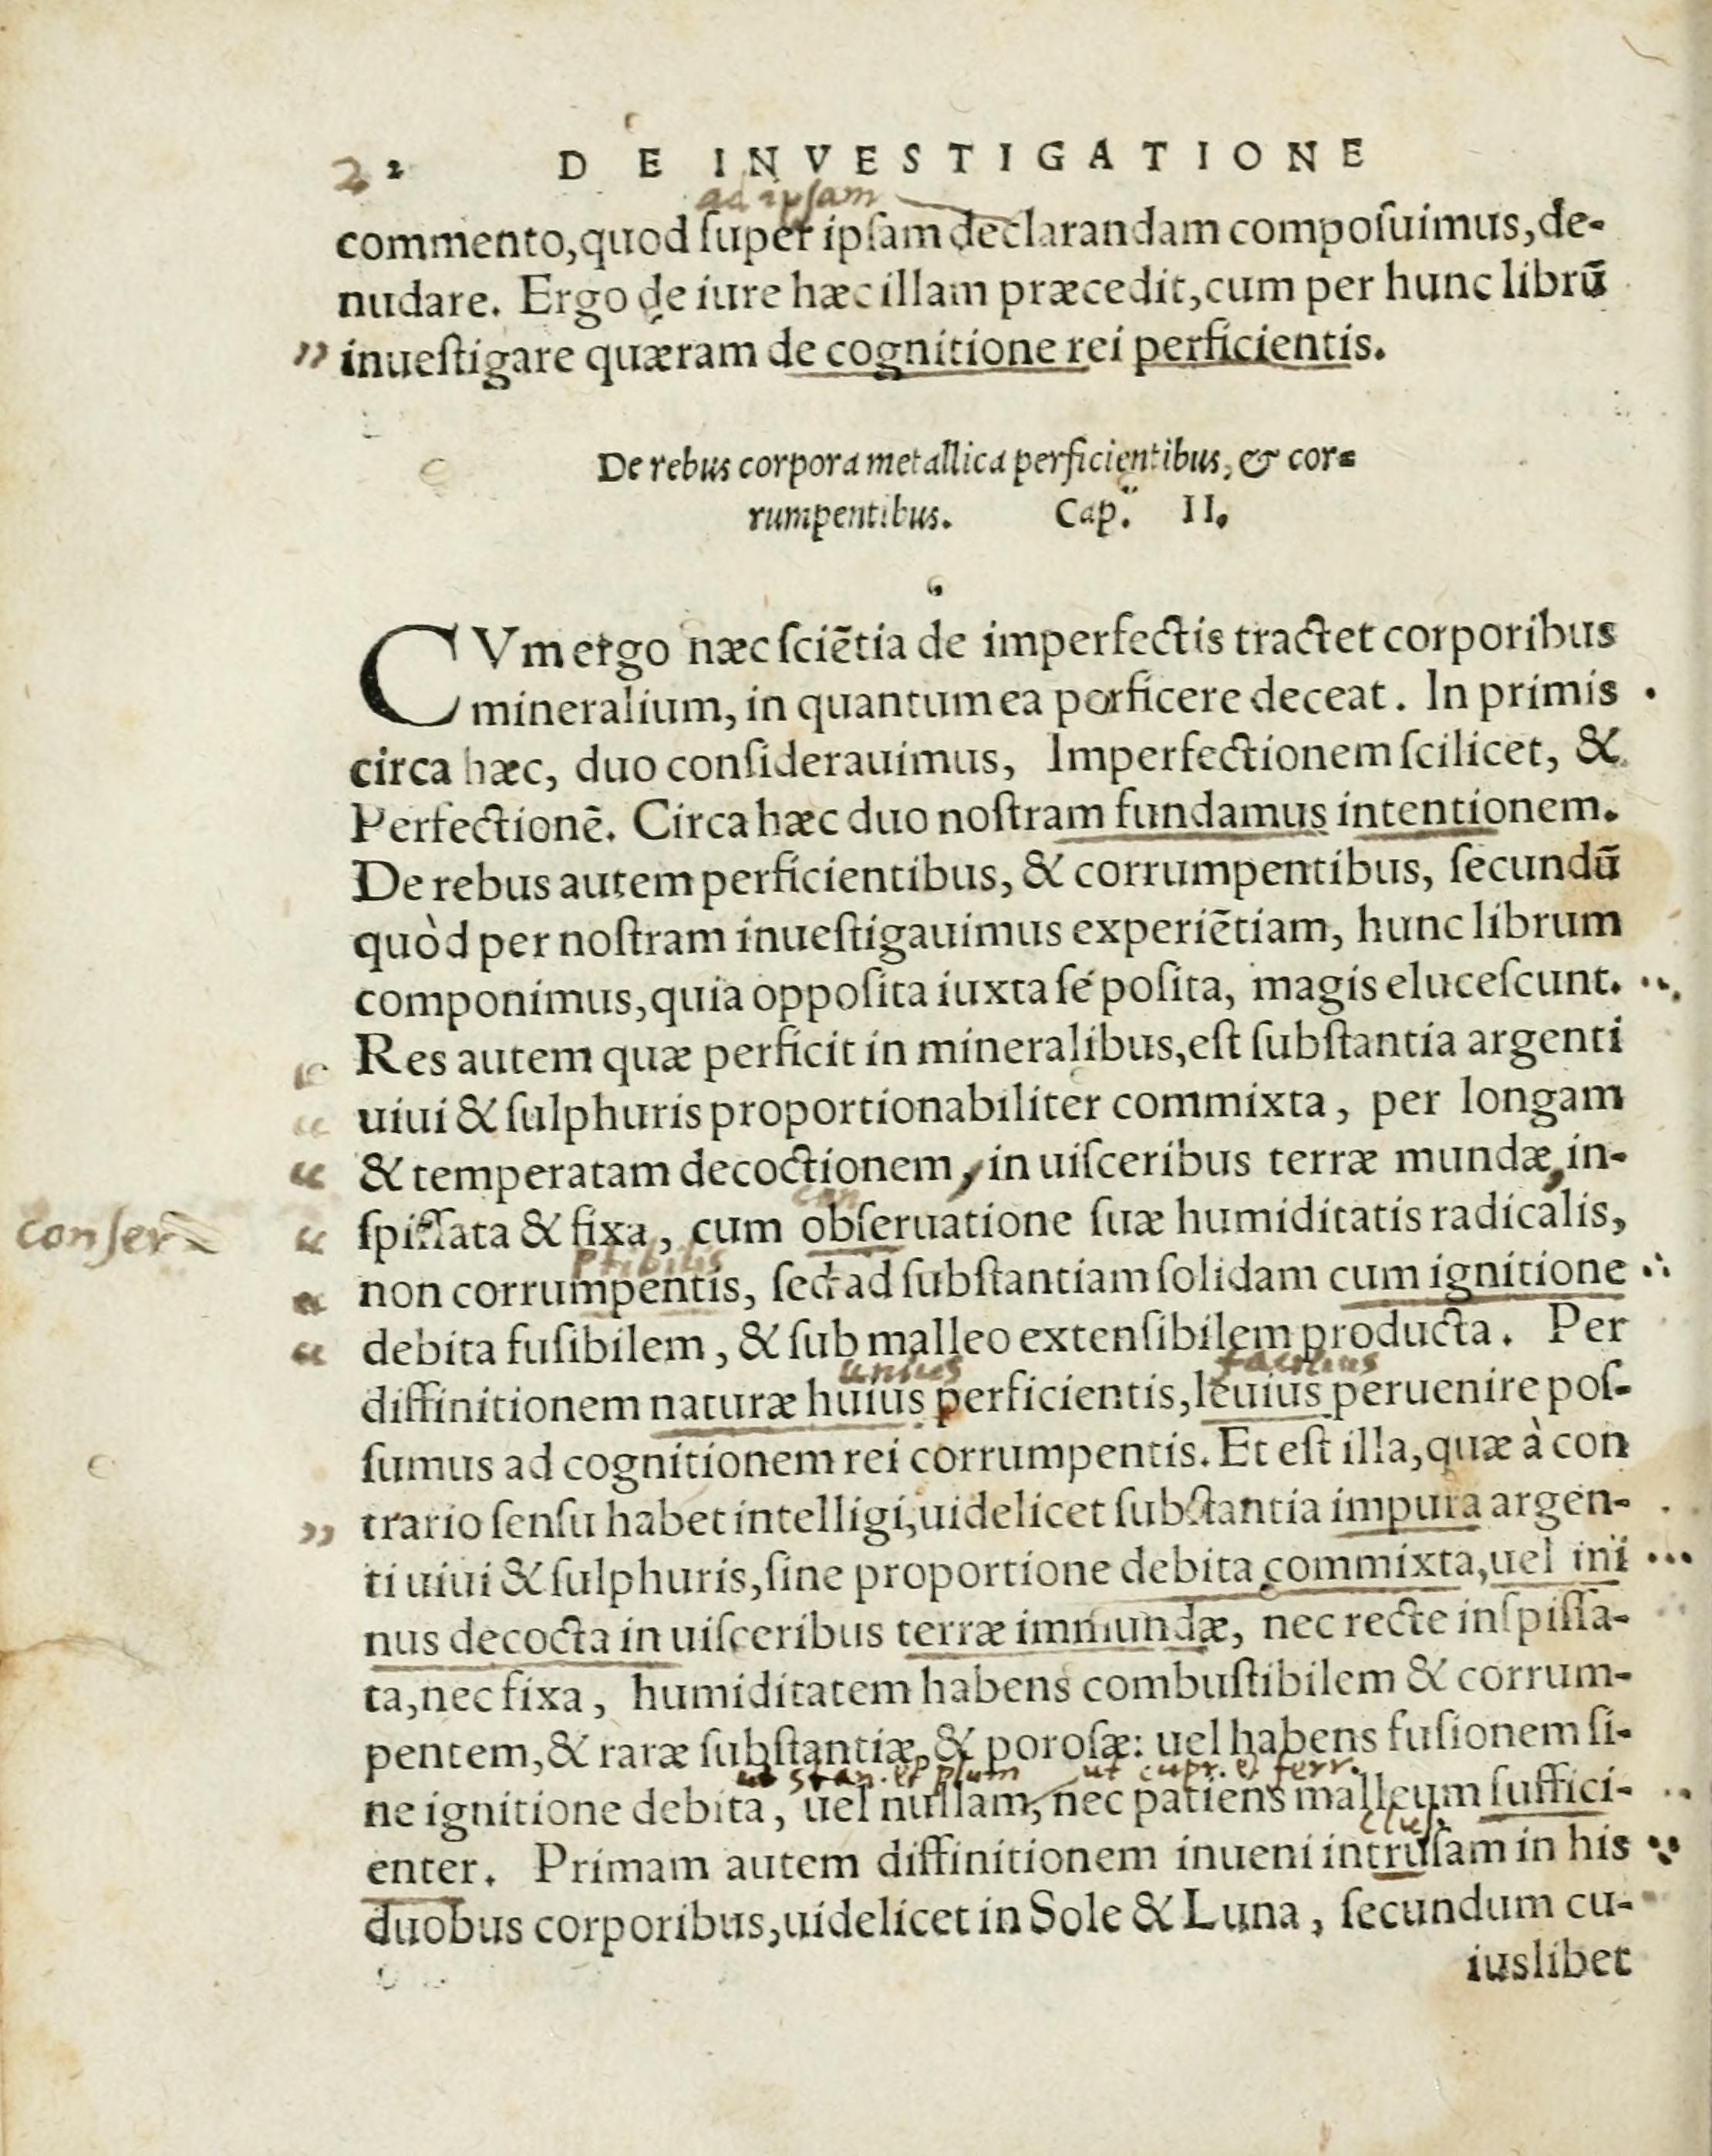 2 2 DE INVESTIGATIONE
ad ipsam
commento,quod ſuper ipſam declarandam compoſuimus,de-
nudare. Ergo de iure hæc illam præcedit,cum per hunc librū
” inueſtigare quæram de cognitione rei perficientis.
De rebus corpora metallica perficientibus, & cor-
rumpentibus. Cap. II.
CVm ergo hæc ſciētia de imperfectis tractet corporibus
mineralium, in quantum ea perficere deceat. In primis
circa hæc, duo conſiderauimus, Imperfectionem ſcilicet, &
Perfectionē. Circa hæc duo noſtram fundamus intentionem.
De rebus autem perficientibus, & corrumpentibus, ſecundū
quòd per noſtram inueſtigauimus experiētiam, hunc librum
componimus,quia oppoſita iuxta ſé poſita, magis eluceſcunt.
Res autem quæ perficit in mineralibus,eſt ſubſtantia argenti
“ uiui & ſulphuris proportionabiliter commixta, per longam
“ & temperatam decoctionem, in uiſceribus terræ mundæ, in-
con
conser
“ ſpiſſata & fixa, cum obſeruatione ſuæ humiditatis radicalis,
ptibilis
“ non corrumpentis, ſed ad ſubſtantiam ſolidam cum ignitione
“ debita fuſibilem, & ſub malleo extenſibilem producta. Per
unius facilius
diffinitionem naturæ huius perficientis,leuius peruenire poſ-
ſumus ad cognitionem rei corrumpentis. Et eſt illa,quæ à con
” trario ſenſu habet intelligi,uidelicet ſubſtantia impura argen-
ti uiui & ſulphuris,ſine proportione debita commixta,uel mi
nus decocta in uiſceribus terræ immundæ, nec recte inſpiſſa-
ta,nec fixa, humiditatem habens combuſtibilem & corrum-
pentem,& raræ ſubſtantiæ,& poroſæ: uel habens fuſionem ſi-
ut stan. et plum ut cupr. et ferr.
ne ignitione debita, uel nullam, nec patiens malleum ſuffici-
enter. Primam autem diffinitionem inueni intruſam in his
duobus corporibus,uidelicet in Sole & Luna, ſecundum cu-
iuslibet